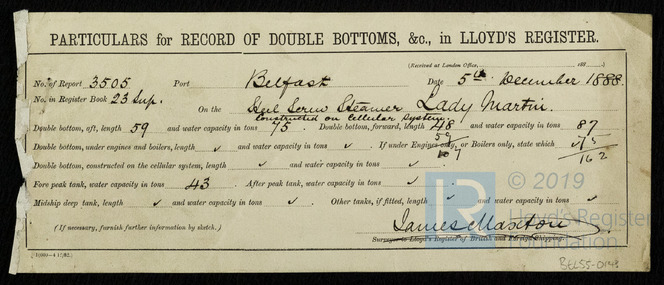 PARTICULARS for RECORD OF DOUBLE BOTTOMS, &c., in LLOYD'S REGISTER.
(Received at London Office, 188 )
No. of Report 3505 Port Belfast Date 5th December 1888.
No. in Register Book 23 Sup. On the Steel Screw Steamer Lady Martin.
Constructed on Cellular System.
Double bottom, aft, length 59 and water capacity in tons 75. Double bottom, forward, length 48 and water capacity in tons 87
Double bottom, under engines and boilers, length ✓ and water capacity in tons ✓. If under Engines only, or Boilers only, state which 75
59
107
162
Double bottom, constructed on the cellular system, length ✓ and water capacity in tons ✓.
Fore peak tank, water capacity in tons 43. After peak tank, water capacity in tons ✓.
Midship deep tank, length ✓ and water capacity in tons ✓. Other tanks, if fitted, length ✓ and water capacity in tons ✓
(If necessary, furnish further information by sketch.)
James Maxton
Surveyor to Lloyd's Register of British and Foreign Shipping.
© 2019
LR
Lloyd's Register
Foundation